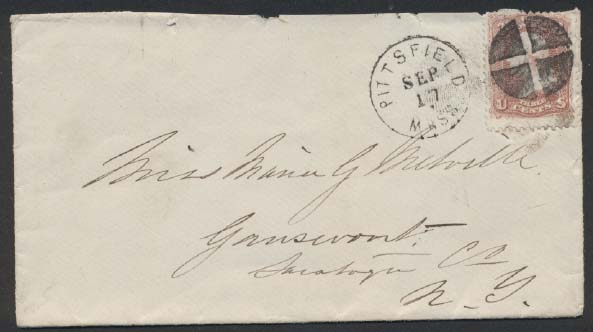 PITTSFIELD
SEP
17
MASS
U S
CENTS
Miss Maria G Melville.
Gansevoort.
Saratoga Co
N. Y.